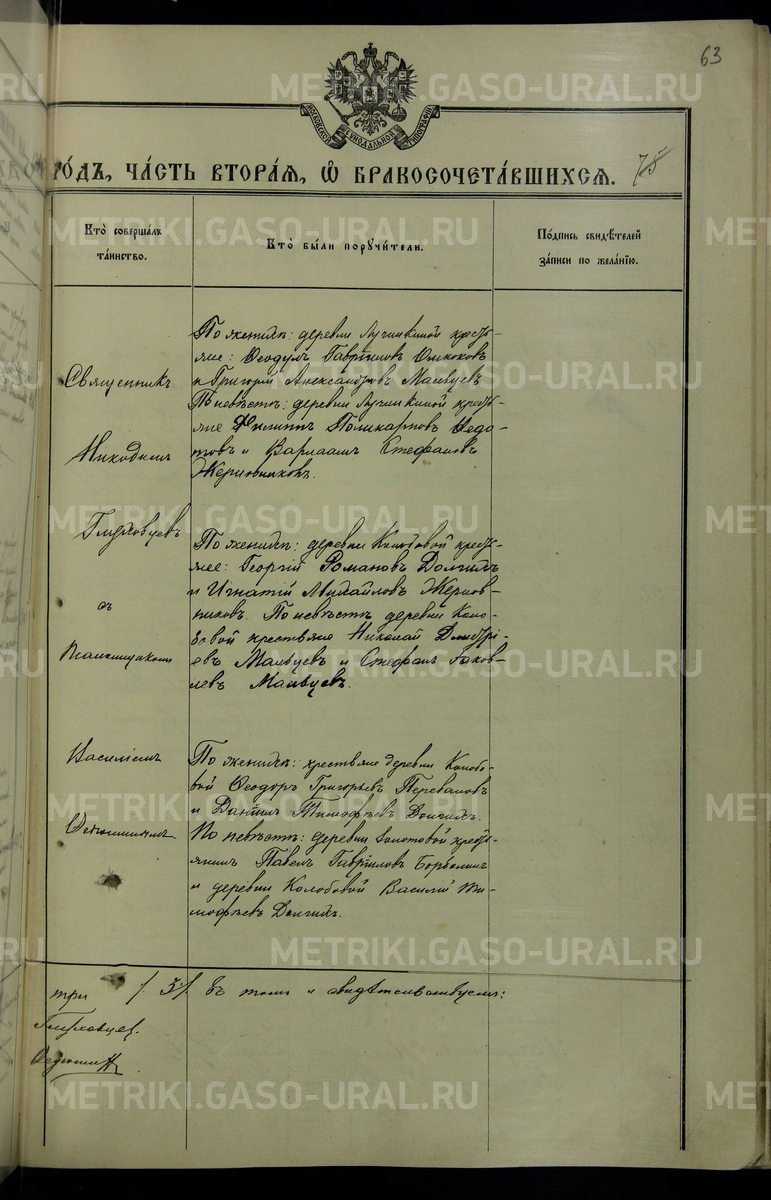 63
МОСКОВСКОЙ СѴНОДАЛЬНОЙ ТИПОГРАФІИ
ГОДЪ, ЧАСТЬ ВТОРАЯ, Ѡ БРАКОСОЧЕТАВШИХСЯ. 75
Кто совершалъ
таинство.
Кто были поручители.
Подпись свидѣтелей
записи по желанію.
Священникъ
Никодимъ
съ
Псаломщикомъ
Василіемъ
По женихѣ: деревни Лучинкиной кресть-
яне: Ѳеодулъ Гаврииловъ
и Григорій Александровъ Мальцевъ
По невѣстѣ: деревни Лучинкиной кресть-
яне Филиппъ Поликарповъ Ѳедо-
товъ и Варлаамъ Стефановъ
Жерновниковъ.
По женихѣ: деревни Колобовой кресть-
яне: Георгій Романовъ Долгихъ
и Игнатій Михайловъ Жернов-
никовъ. По невѣстѣ деревни Коло-
бовой крестьяне Николай Димитрі-
евъ Мальцевъ и Стефанъ Яков-
левъ Мальцевъ.
По женихѣ: крестьяне деревни Колобо-
вой Ѳеодоръ Григорьевъ Переваловъ
и Даніилъ Тимофѣевъ Долгихъ.
По невѣстѣ: деревни Золотовой кресть-
янинъ Павелъ Гавріиловъ
и деревни Колобовой Василій Ти-
мофѣевъ Долгихъ.
три /3/. въ томъ и свидѣтельствуемъ:
METRIKI.GASO-URAL.RU